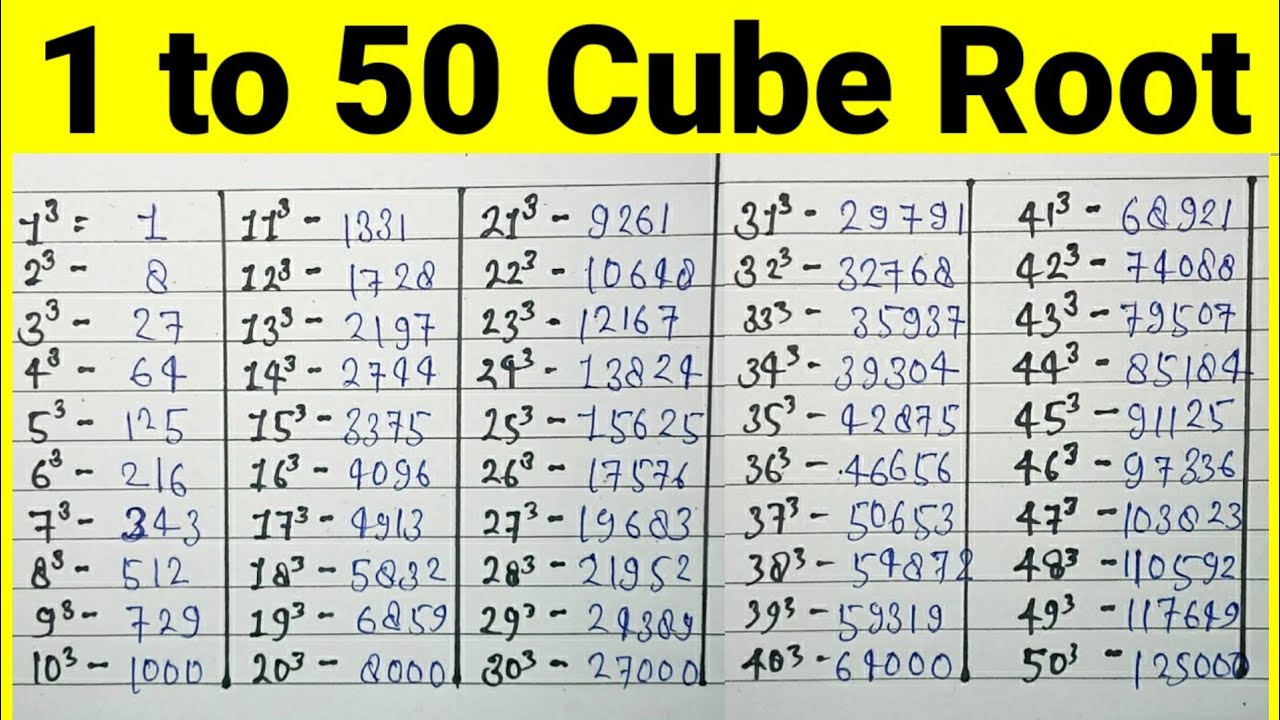 1 to 50 Cube Root
1³ = 1
2³ - 8
3³ - 27
4³ - 64
5³ - 125
6³ - 216
7³ - 343
8³ - 512
9³ - 729
10³ - 1000
11³ - 1331
12³ - 1728
13³ - 2197
14³ - 2744
15³ - 3375
16³ - 4096
17³ - 4913
18³ - 5832
19³ - 6859
20³ - 8000
21³ - 9261
22³ - 10648
23³ - 12167
24³ - 13824
25³ - 15625
26³ - 17576
27³ - 19683
28³ - 21952
29³ - 24389
30³ - 27000
31³ - 29791
32³ - 32768
33³ - 35937
34³ - 39304
35³ - 42875
36³ - 46656
37³ - 50653
38³ - 54872
39³ - 59319
40³ - 64000
41³ - 68921
42³ - 74088
43³ - 79507
44³ - 85184
45³ - 91125
46³ - 97336
47³ - 103823
48³ - 110592
49³ - 117649
50³ - 125000